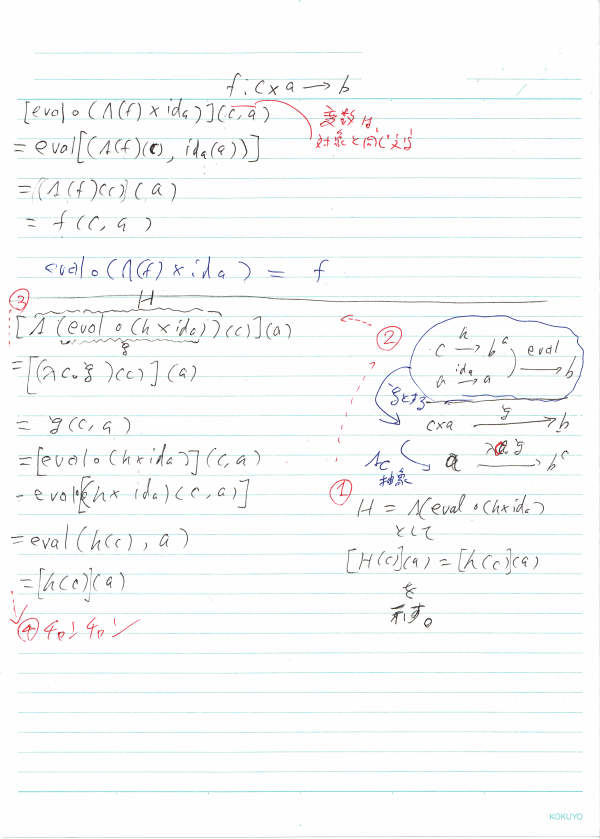 f : c×a → b
[eval∘(Λ(f)×id_a)](c,a)
変数は
対象と同じ文字
= eval[(Λ(f)(c), id_a(a))]
= (Λ(f)(c))(a)
= f(c, a)
eval∘(Λ(f)×id_a) = f
③
H
[Λ(eval∘(h×id_a))(c)](a)
g
= [(λc.g)(c)](a)
= g(c, a)
= [eval∘(h×id_a)](c,a)
= eval[(h×id_a)(c,a)]
= eval(h(c), a)
= [h(c)](a)
④
②
h
c → b^a
eval
→ b
id_a
a → a
gとする
c×a g → b
Λc
抽象
→ b^c
①
H = Λ(eval∘(h×id_a)
として
[H(c)](a) = [h(c)](a)
を
示す。
KOKUYO